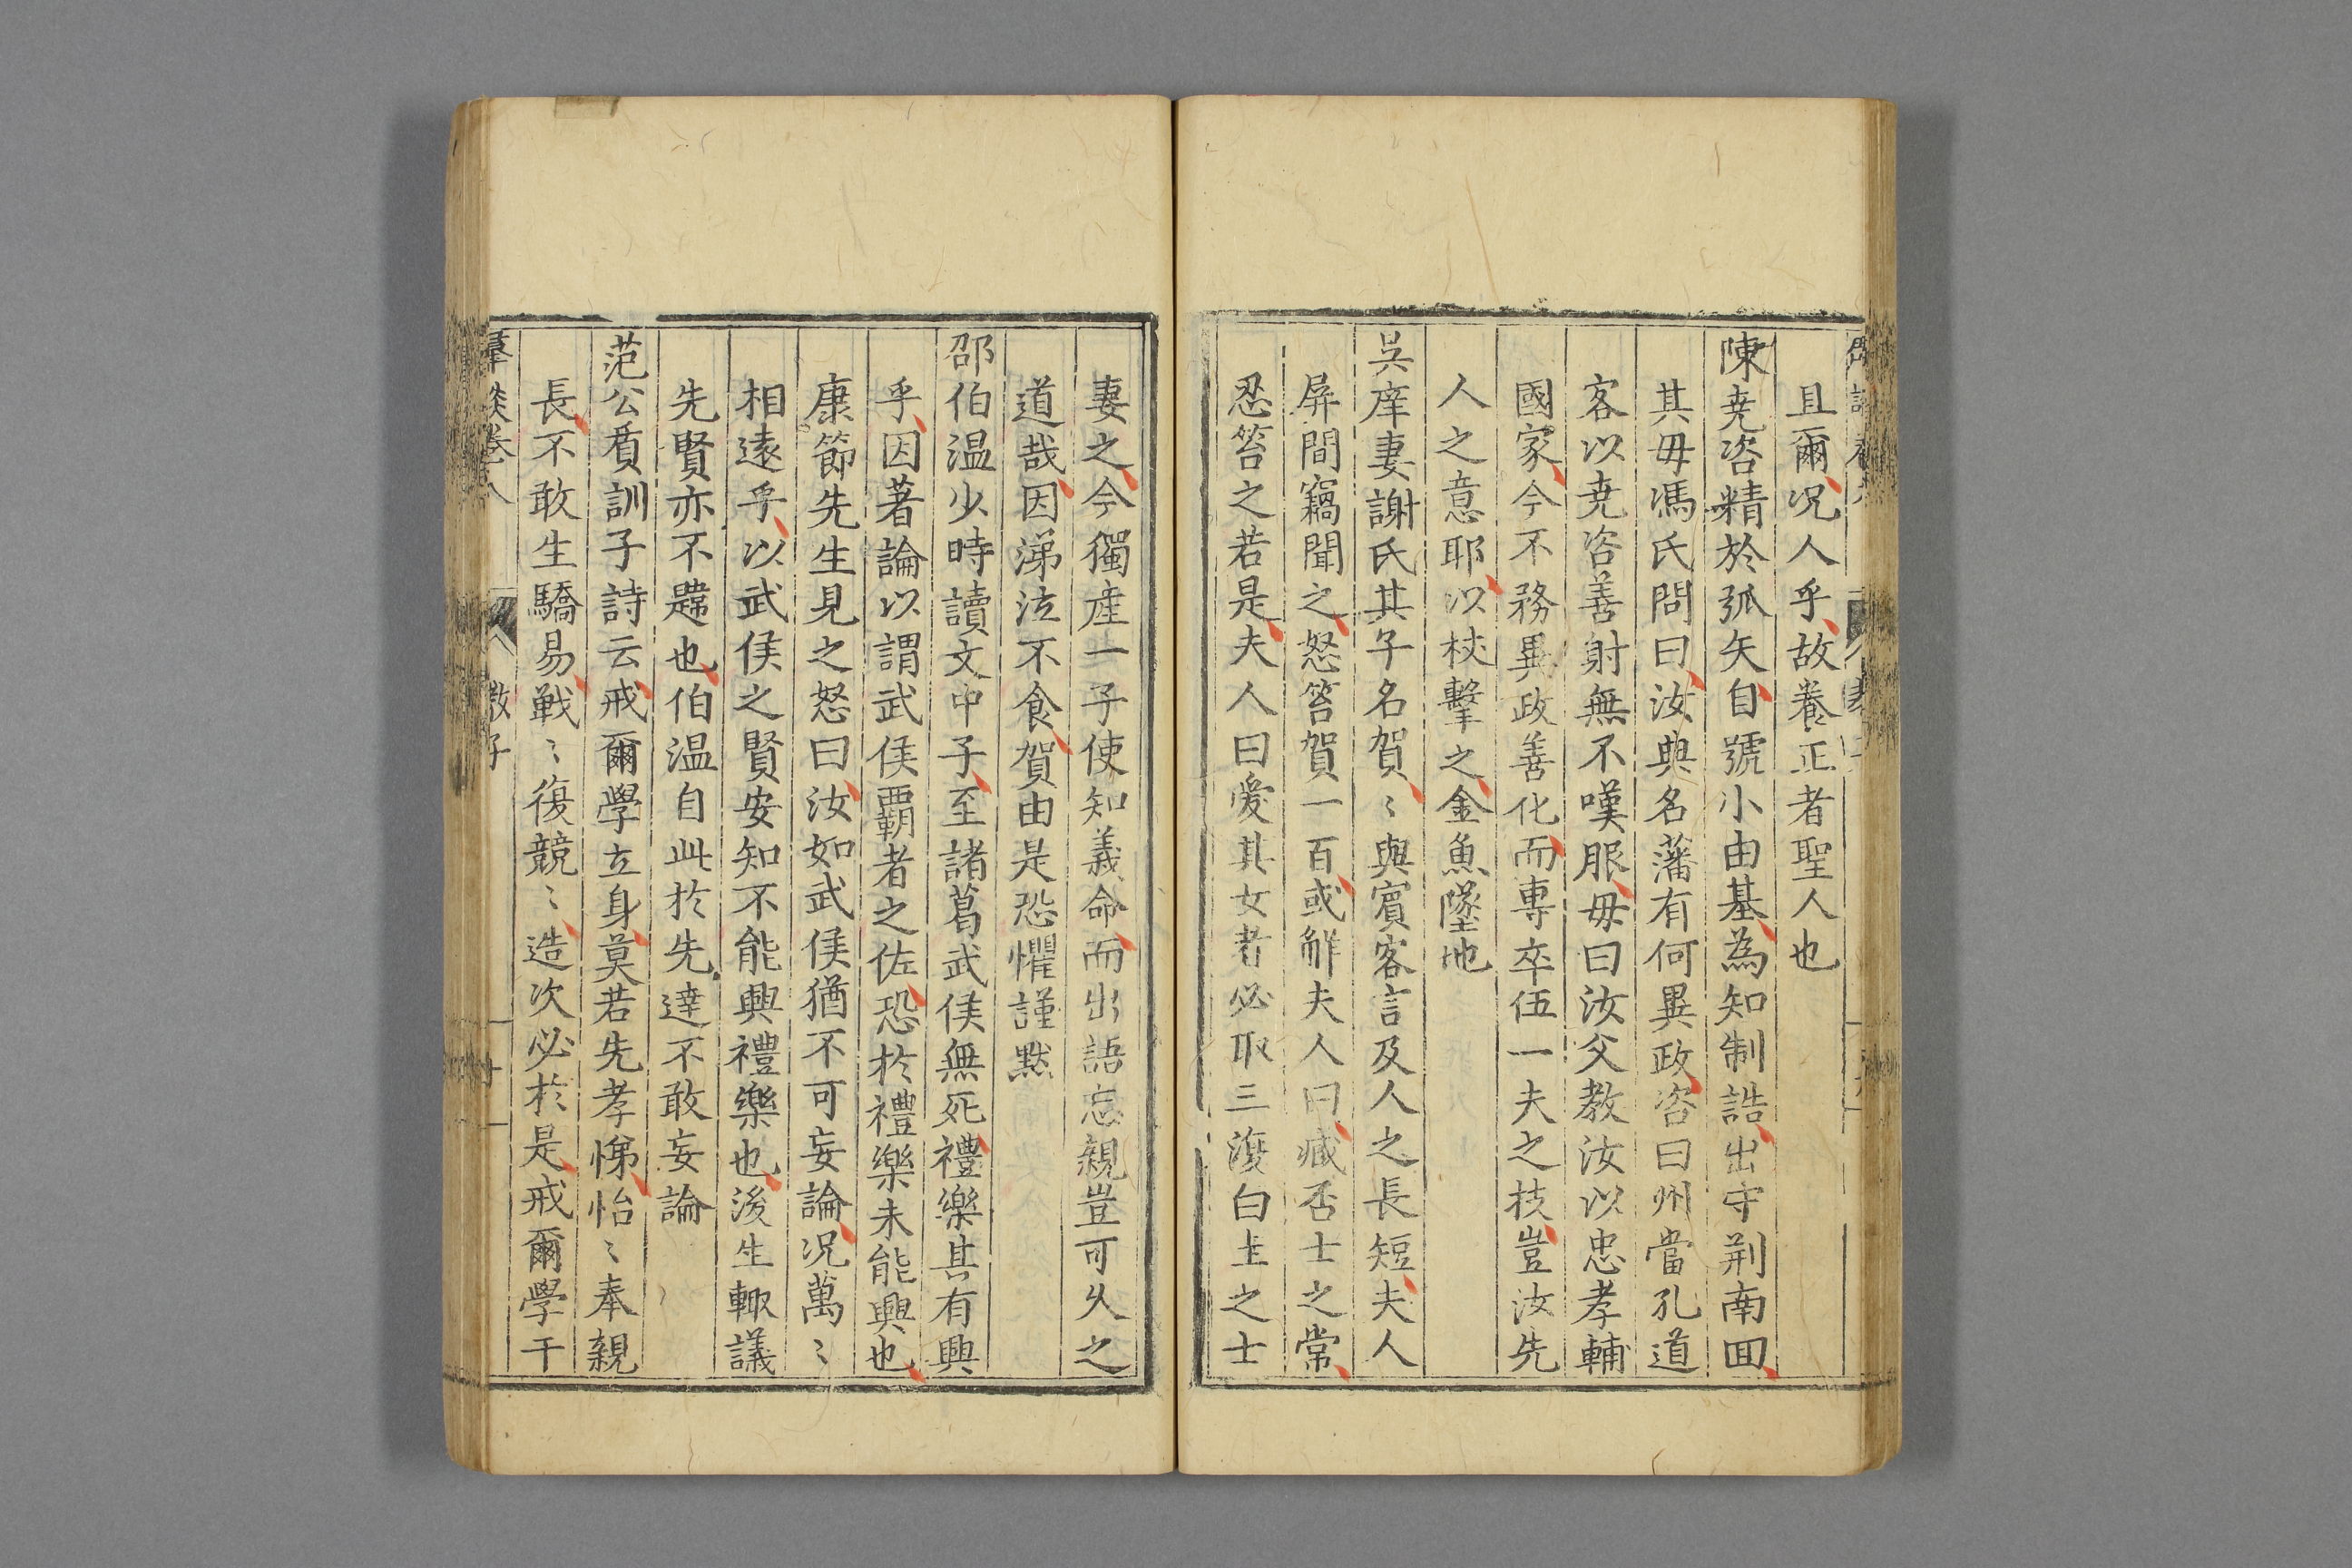 且爾况人乎故養正者聖人也
陳尭咨精於弧矢自號小由基為知制誥出守荆南囬
其毋馮氏問曰汝典名藩有何異政咨曰州當孔道
客以尭咨善射無不嘆服毋曰汝父教汝以忠孝輔
國家今不務異政善化而專卒伍一夫之技豈汝先
人之意耶以杖擊之金魚墜地
吳庠妻謝氏其子名賀〻與賓客言及人之長短夫人
屏間竊聞之怒笞賀一百或觧夫人曰臧否士之常
忍笞之若是夫人曰愛其女者必取三復白圭之士
妻之今獨産一子使知義命而出語忘親豈可久之
道哉因涕泣不食賀由是恐懼謹黙
邵伯温少時讀文中子至諸葛武侯無死禮樂其有興
乎因著論以謂武侯覇者之佐恐於禮樂未能興也
康節先生見之怒曰汝如武侯猶不可妄論况萬〻
相遠乎以武侯之賢安知不能興禮樂也後生輙議
先賢亦不韙也伯温自此於先達不敢妄論
范公質訓子詩云戒爾學立身莫若先孝悌怡〻奉親
長不敢生驕易戰〻復競〻造次必於是戒爾學干
羣談卷八 教子 十